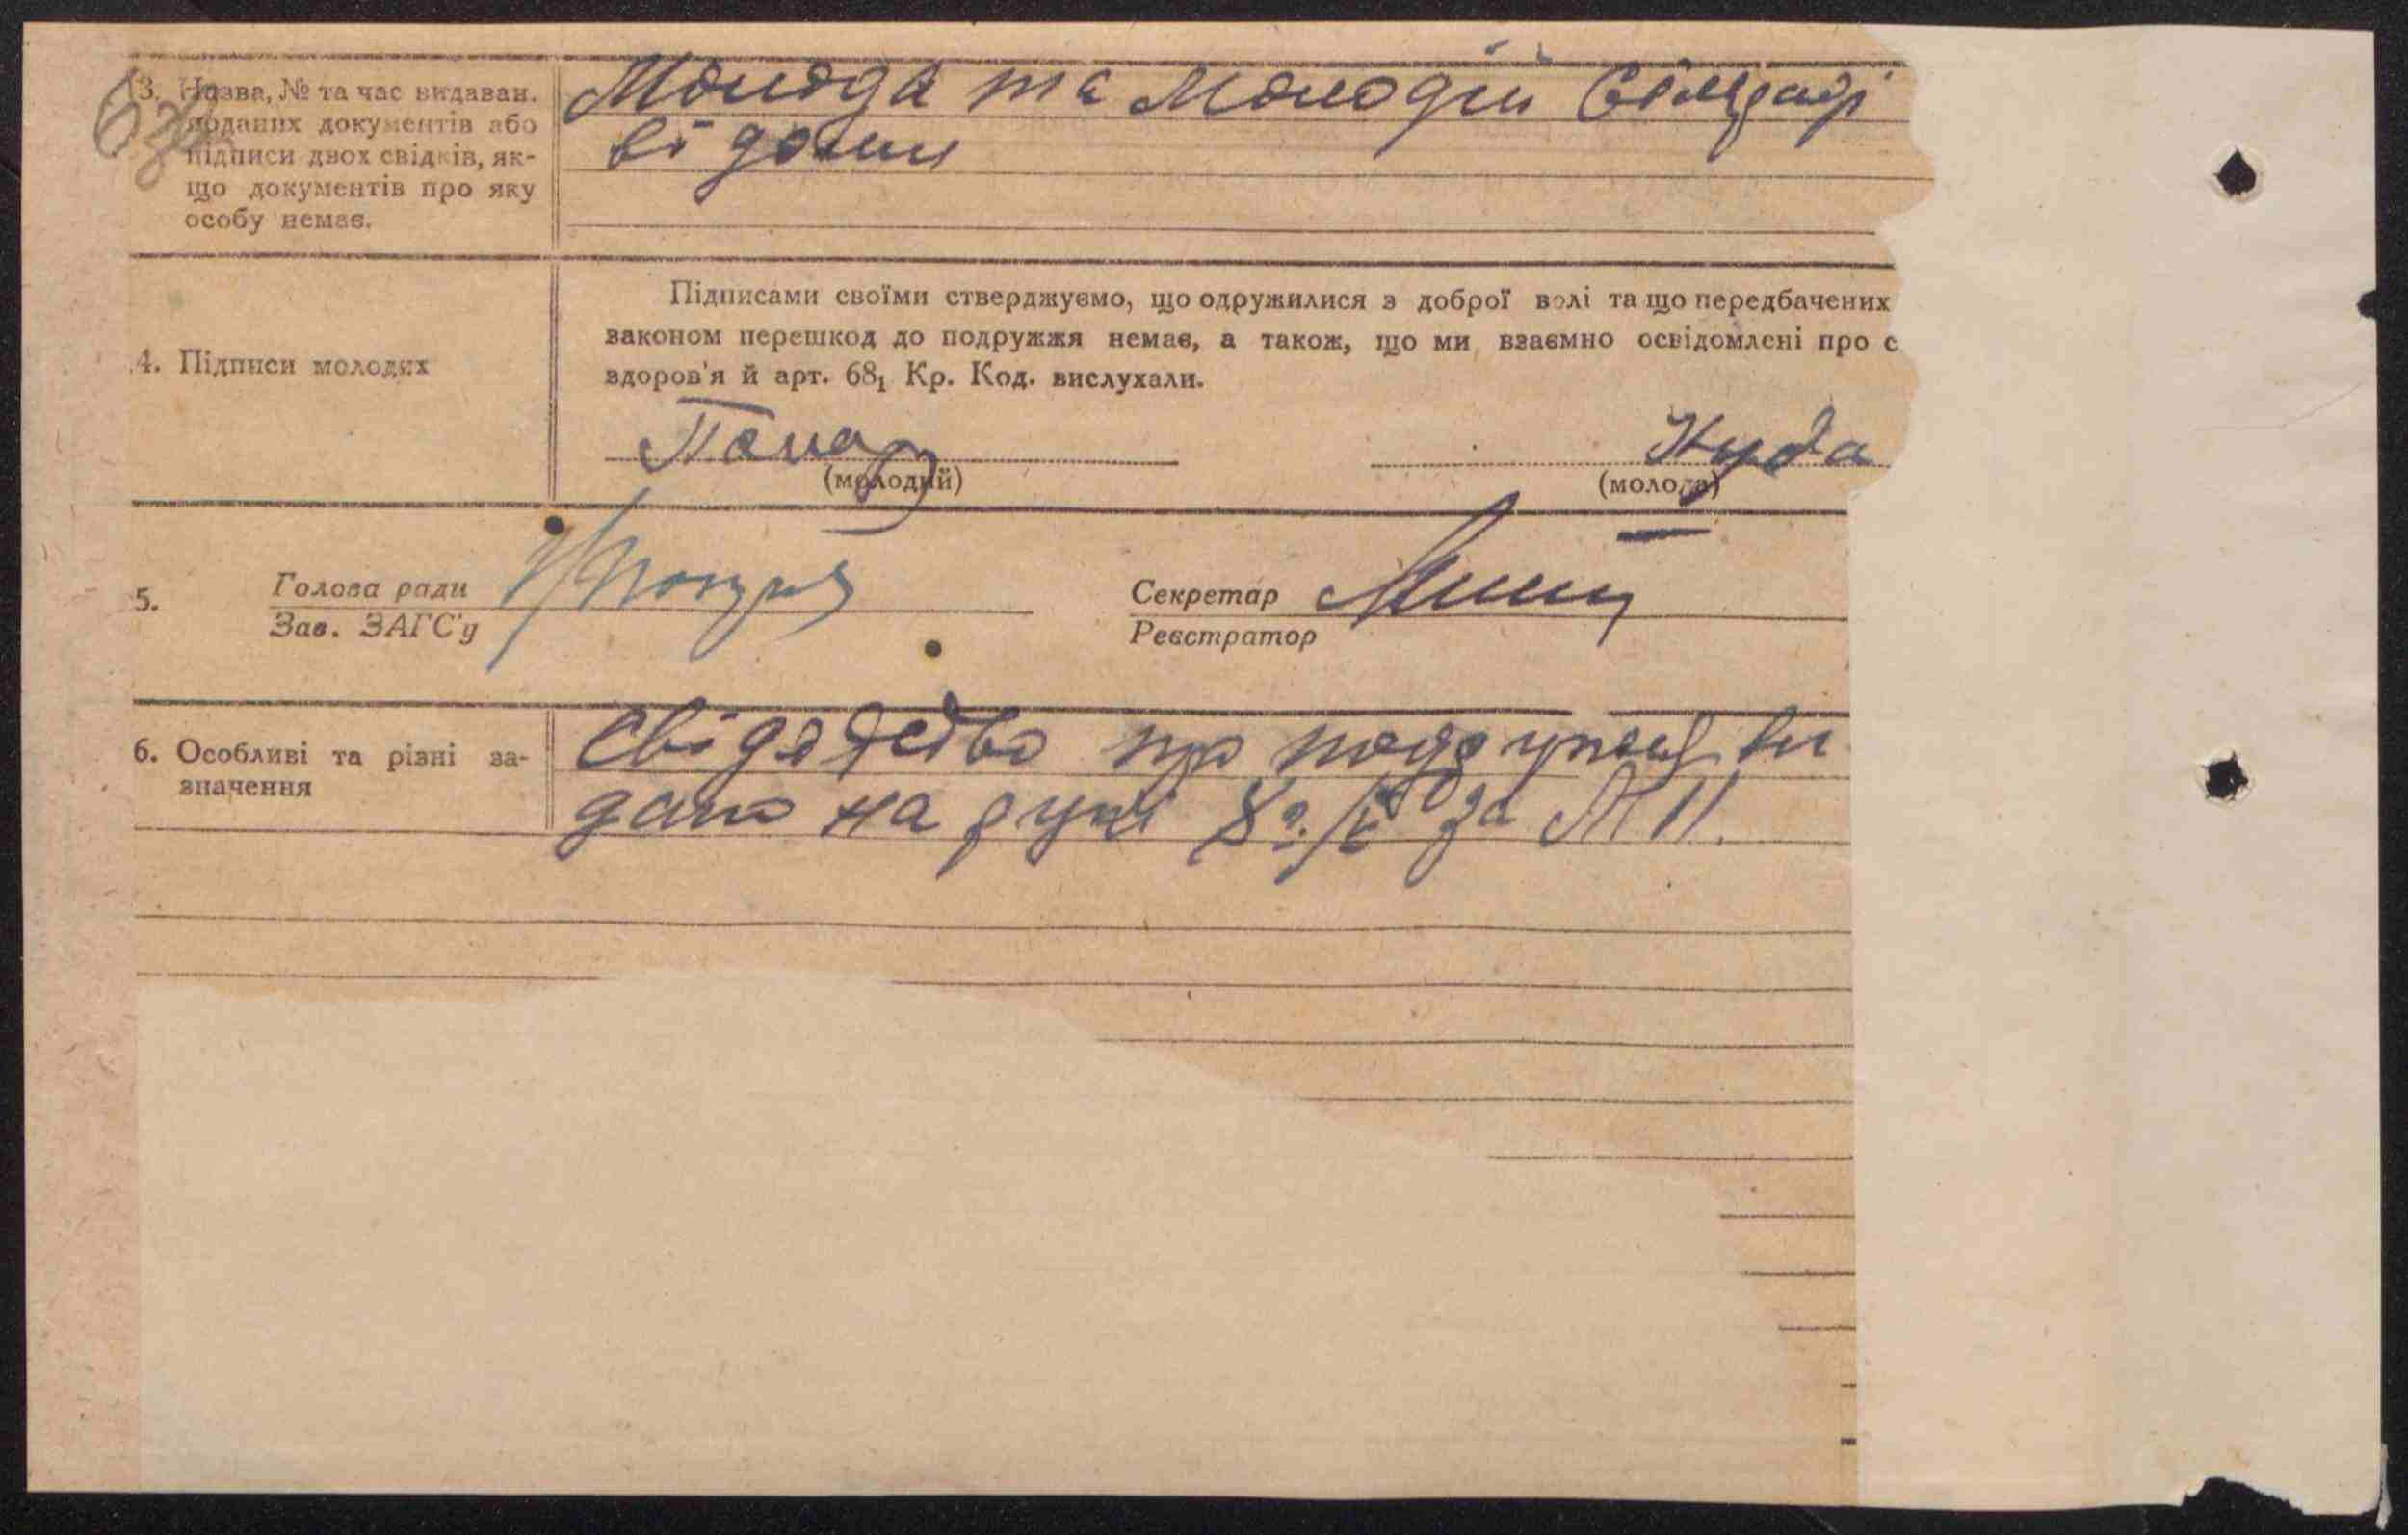 13. Назва, № та час видаван.
поданих документів або
підписи двох свідків, як-
що документів про яку
особу немає.
Молода та Молодий Сільраді
відомі
Підписами своїми стверджуємо, що одружилися з доброї волі та що передбачених
законом перешкод до подружжя немає, а також, що ми взаємно освідомлені про с
здоров'я й арт. 68₁ Кр. Код. вислухали.
14. Підписи молодих
(молодий)
(молода)
15. Голова ради
Зав. ЗАГС'у
Секретар
Реєстратор
16. Особливі та різні за-
значення
Свідоцтво про ви
дано на руки за № 11.